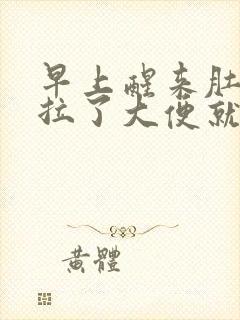 早上醒来肚
拉了大便就
黄體